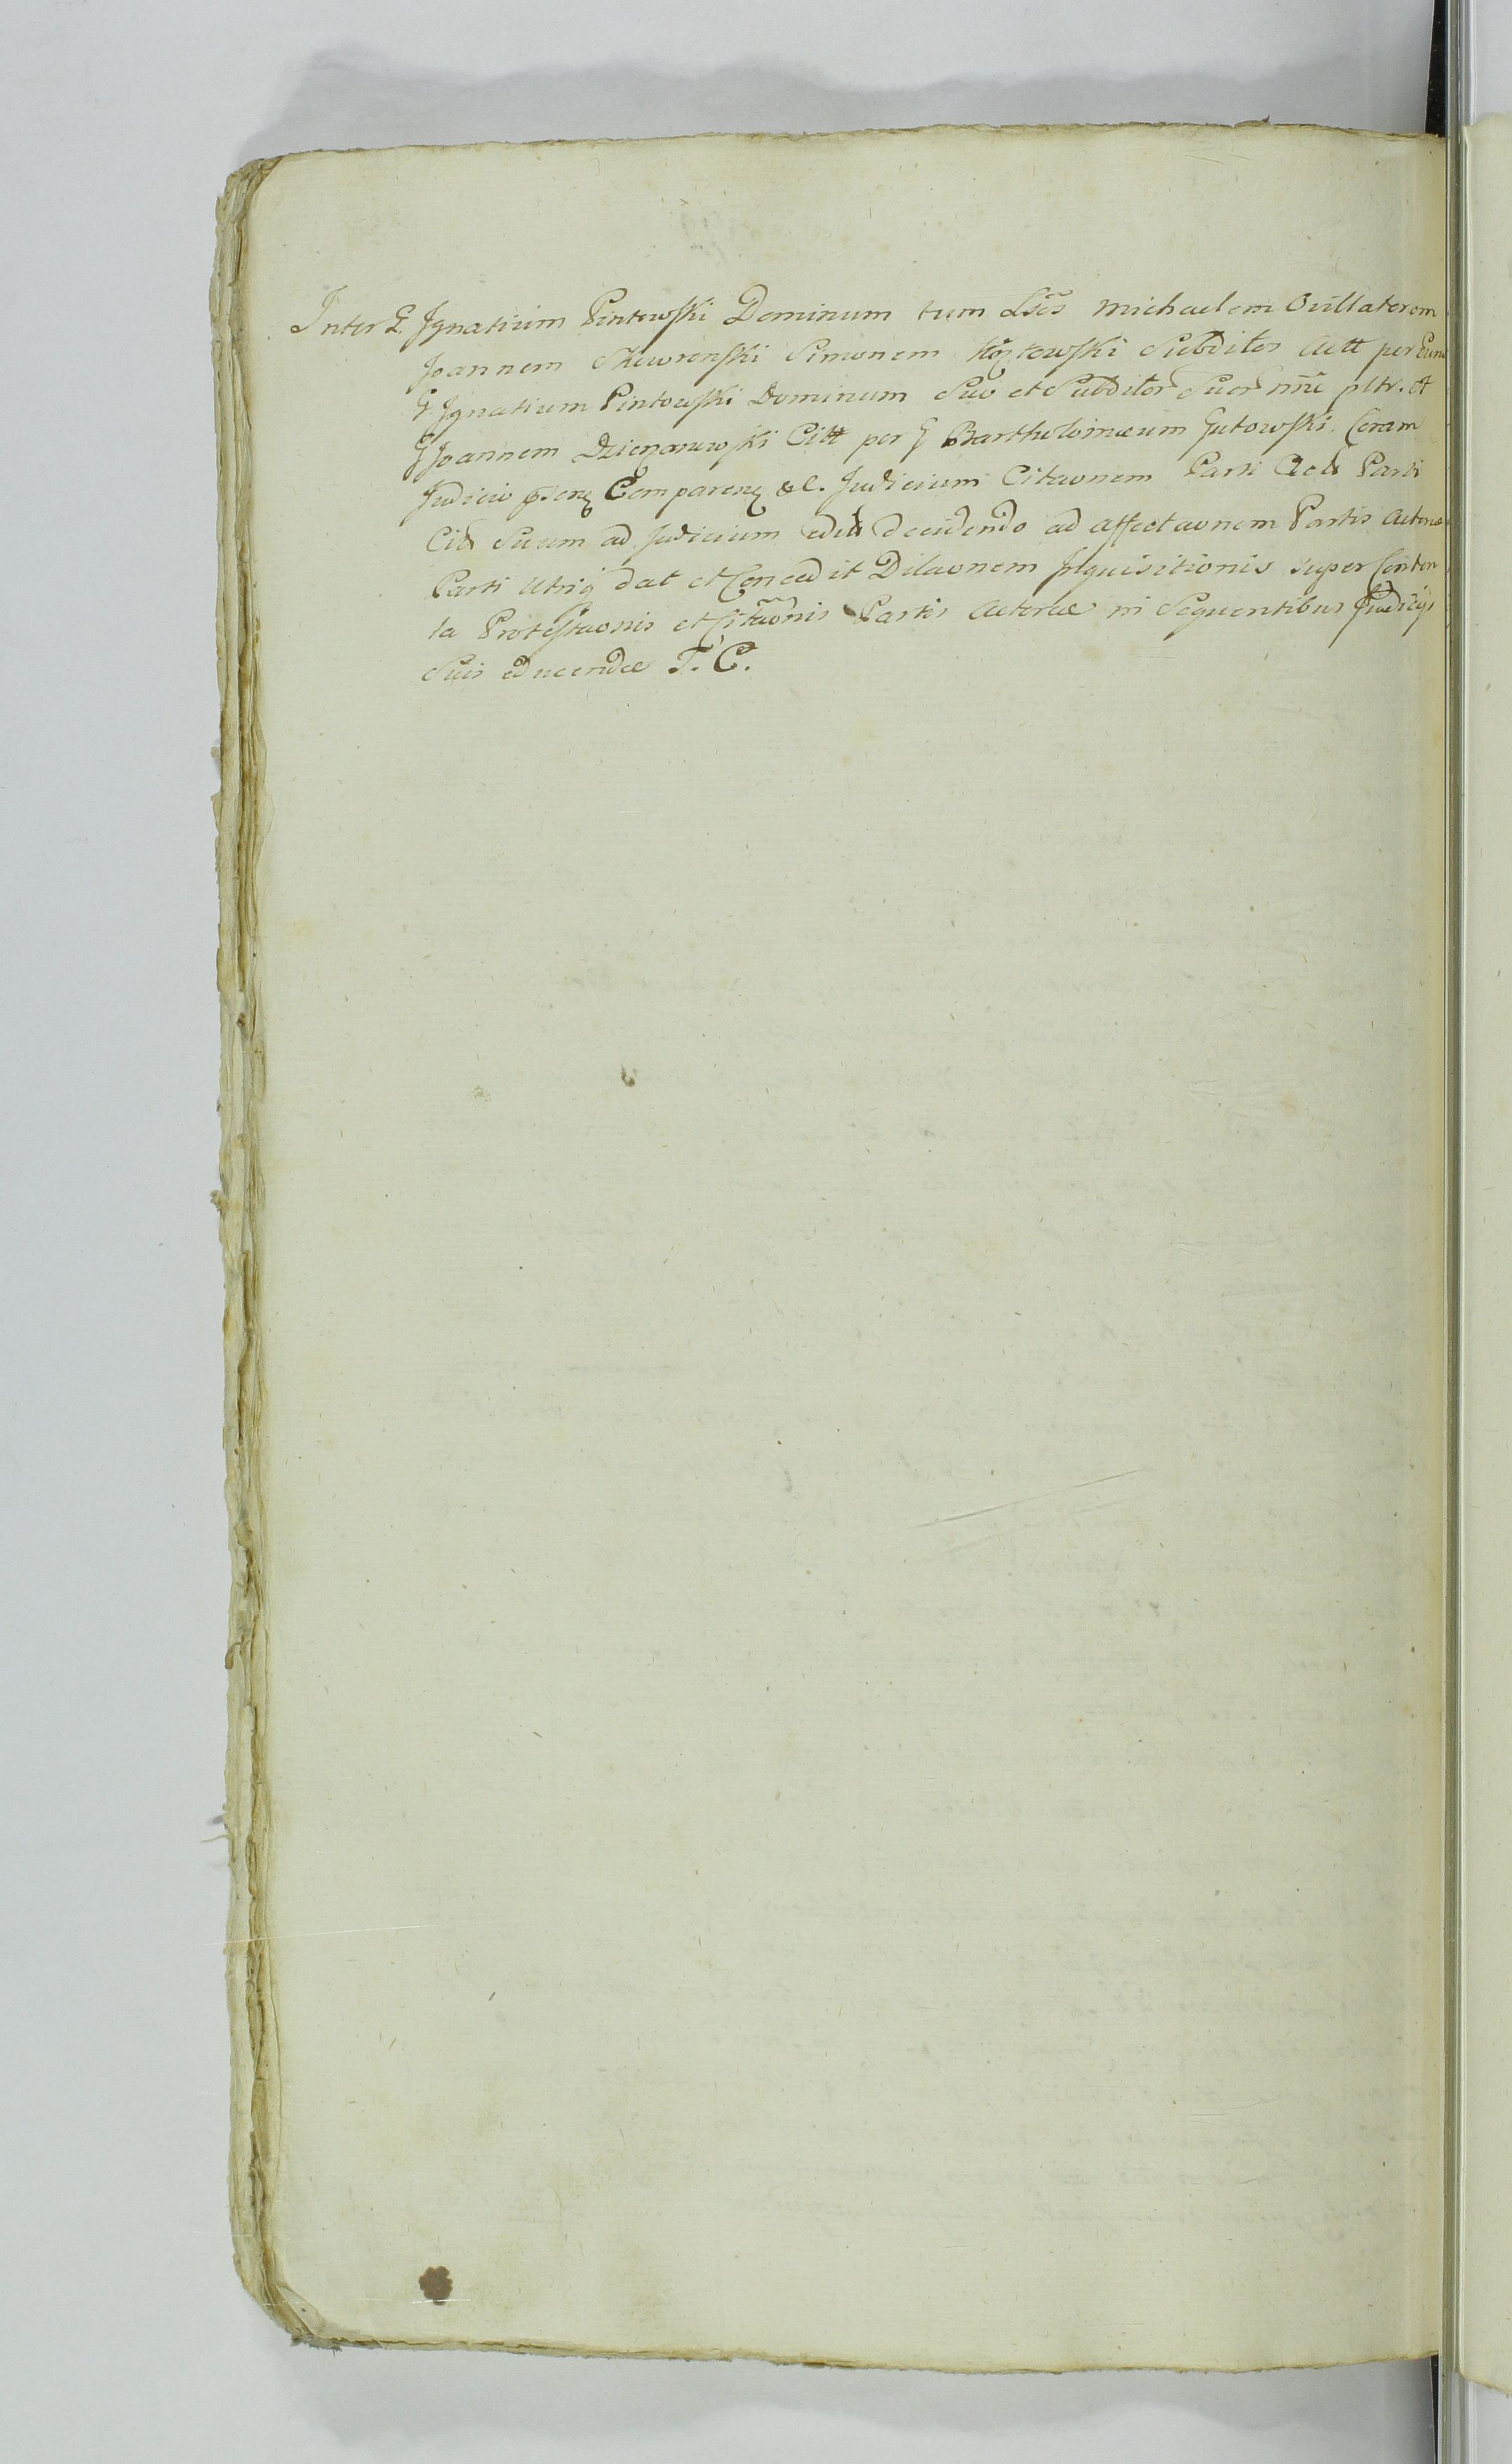 Inter G. Ignatium Pintowski Dominum tum Lses Michaelem Ovillatorem
Joannem Skowronski Simonem Kozłowski Subditos Actt per Eund
G Ignatium Pintowski Dominum Suo et Subditor Suor nne pltr. et
G Joannem Citt per G Bartholomæum Gutowski. Coram
Judicio Comparen &c. Judicium Citaonem Parti Act Parti
Cit Suum ad Judicium decidendo ad affectaonem Partis Actoreæ
Parti Utriq dat et Concedit Dilaonem Inquisitionis super Conten
ta Protestaonis et Citaonis Partis Actoreæ in Sequentibus Judicijs
Suis educendæ T. C.